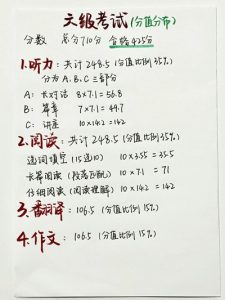 六级考试(分值分布)
分数 总分710分 合格425分
1.听力：共计248.5(分值比例35%)
分为A、B、C三部分
A：长对话 8×7.1=56.8
B：篇章 7×7.1=49.7
C：讲座 10×14.2=142
2.阅读：共计248.5(分值比例35%)
选词填空(15选10) 10×3.55=35.5
长篇阅读(段落匹配) 10×7.1=71
仔细阅读(阅读理解) 10×14.2=142
3.翻译：106.5(分值比例15%)
4.作文：106.5(分值比例15%)